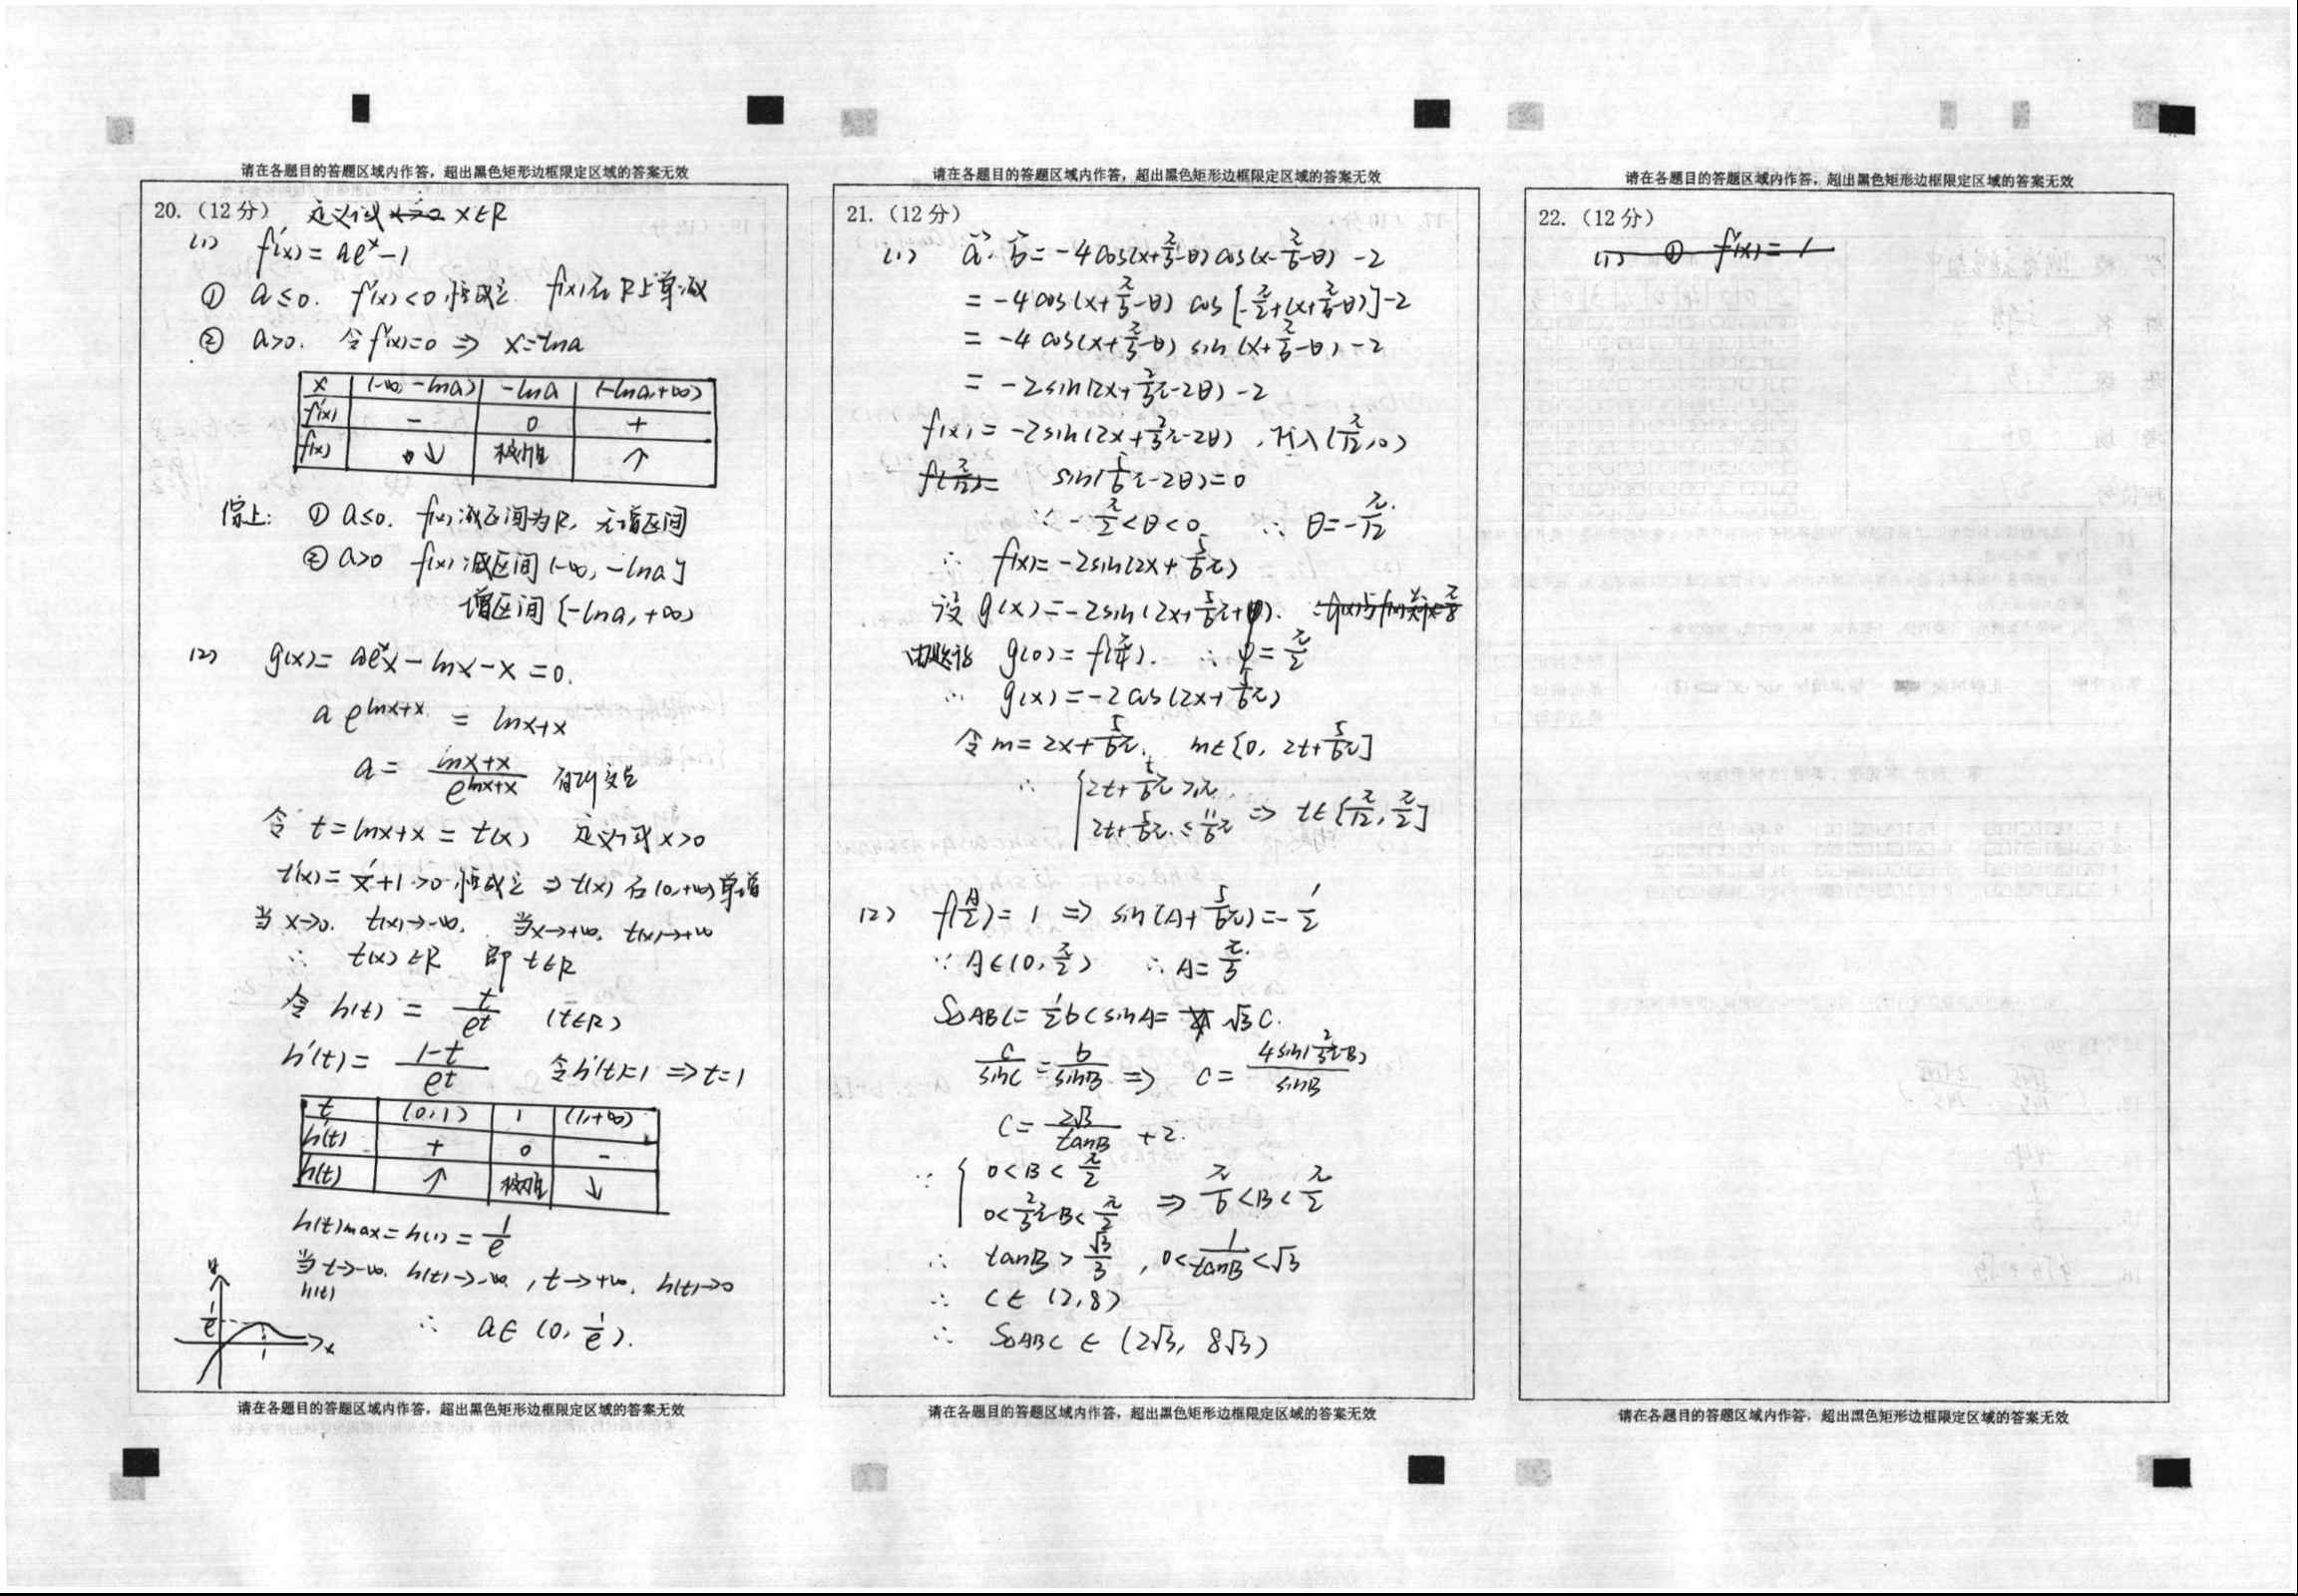 请在各题目的答题区域内作答，超出黑色矩形边框限定区域的答案无效
20.（12分） 定义域 x>0 x∈R
(1) f'(x)=ae^x-1
① a≤0. f'(x)<0 恒成立. f(x)在R上单减
② a>0. 令f'(x)=0 ⇒ x=-lna
x (-∞,-lna) -lna (-lna,+∞)
f'(x) - 0 +
f(x) ↓ 极小值 ↑
综上: ① a≤0. f(x)减区间为R, 无增区间
② a>0 f(x)减区间(-∞,-lna]
增区间[-lna,+∞)
(2) g(x)=ae^x x-lnx-x=0.
a e^{lnx+x} = lnx+x
a = \frac{lnx+x}{e^{lnx+x}} 有两交点
令 t=lnx+x=t(x) 定义域x>0
t'(x)=\frac{1}{x}+1>0 恒成立 ⇒ t(x)在(0,+∞)单增
当x→0. t(x)→-∞. 当x→+∞. t(x)→+∞
∴ t(x)∈R 即 t∈R
令 h(t) = \frac{t}{e^t} (t∈R)
h'(t) = \frac{1-t}{e^t} 令h'(t)=1 ⇒ t=1
t (0,1) 1 (1,+∞)
h'(t) + 0 -
h(t) ↑ 极大值 ↓
h(t)max=h(1)=\frac{1}{e}
当t→-∞. h(t)→-∞, t→+∞. h(t)→0
h(t)
\frac{1}{e} 1 x
∴ a∈(0,\frac{1}{e}).
请在各题目的答题区域内作答，超出黑色矩形边框限定区域的答案无效
请在各题目的答题区域内作答，超出黑色矩形边框限定区域的答案无效
21.（12分）
(1) \vec{a}·\vec{b}=-4cos(x+\frac{π}{3}-θ)cos(x-\frac{π}{6}-θ)-2
=-4cos(x+\frac{π}{3}-θ) cos[-\frac{π}{2}+(x+\frac{π}{3}-θ)]-2
=-4cos(x+\frac{π}{3}-θ) sin(x+\frac{π}{3}-θ)-2
=-2sin(2x+\frac{2}{3}π-2θ)-2
f(x)=-2sin(2x+\frac{2}{3}π-2θ), 代入(\frac{π}{12},0)
f(\frac{π}{12})= sin(\frac{5}{6}π-2θ)=0
∵ -\frac{π}{2}<θ<0 ∴ θ=-\frac{π}{12}.
∴ f(x)=-2sin(2x+\frac{5}{6}π)
设 g(x)=-2sin(2x+\frac{5}{6}π+φ).
g(0)=f(\frac{π}{4}). ∴ φ=\frac{π}{2}
∴ g(x)=-2cos(2x+\frac{5}{6}π)
令 m=2x+\frac{5}{6}π. m∈[0, 2t+\frac{5}{6}π]
∴ { 2t+\frac{5}{6}π≥π
2t+\frac{5}{6}π≤\frac{11}{6}π ⇒ t∈[\frac{π}{12},\frac{π}{2}]
(2) f(\frac{A}{2})=1 ⇒ sin(A+\frac{5}{6}π)=-\frac{1}{2}
∵ A∈(0,\frac{π}{2}) ∴ A=\frac{π}{3}.
S△ABC=\frac{1}{2}bcsinA= √3c.
\frac{c}{sinC}=\frac{b}{sinB} ⇒ c=\frac{4sin(\frac{2}{3}π-B)}{sinB}
c=\frac{2√3}{tanB}+2.
∵ { 0<B<\frac{π}{2}
0<\frac{2}{3}π-B<\frac{π}{2} ⇒ \frac{π}{6}<B<\frac{π}{2}
∴ tanB>\frac{√3}{3}, 0<\frac{1}{tanB}<√3
∴ c∈(2,8)
∴ S△ABC∈(2√3, 8√3)
请在各题目的答题区域内作答，超出黑色矩形边框限定区域的答案无效
请在各题目的答题区域内作答，超出黑色矩形边框限定区域的答案无效
22.（12分）
(1) ① f'(x)=1
请在各题目的答题区域内作答，超出黑色矩形边框限定区域的答案无效